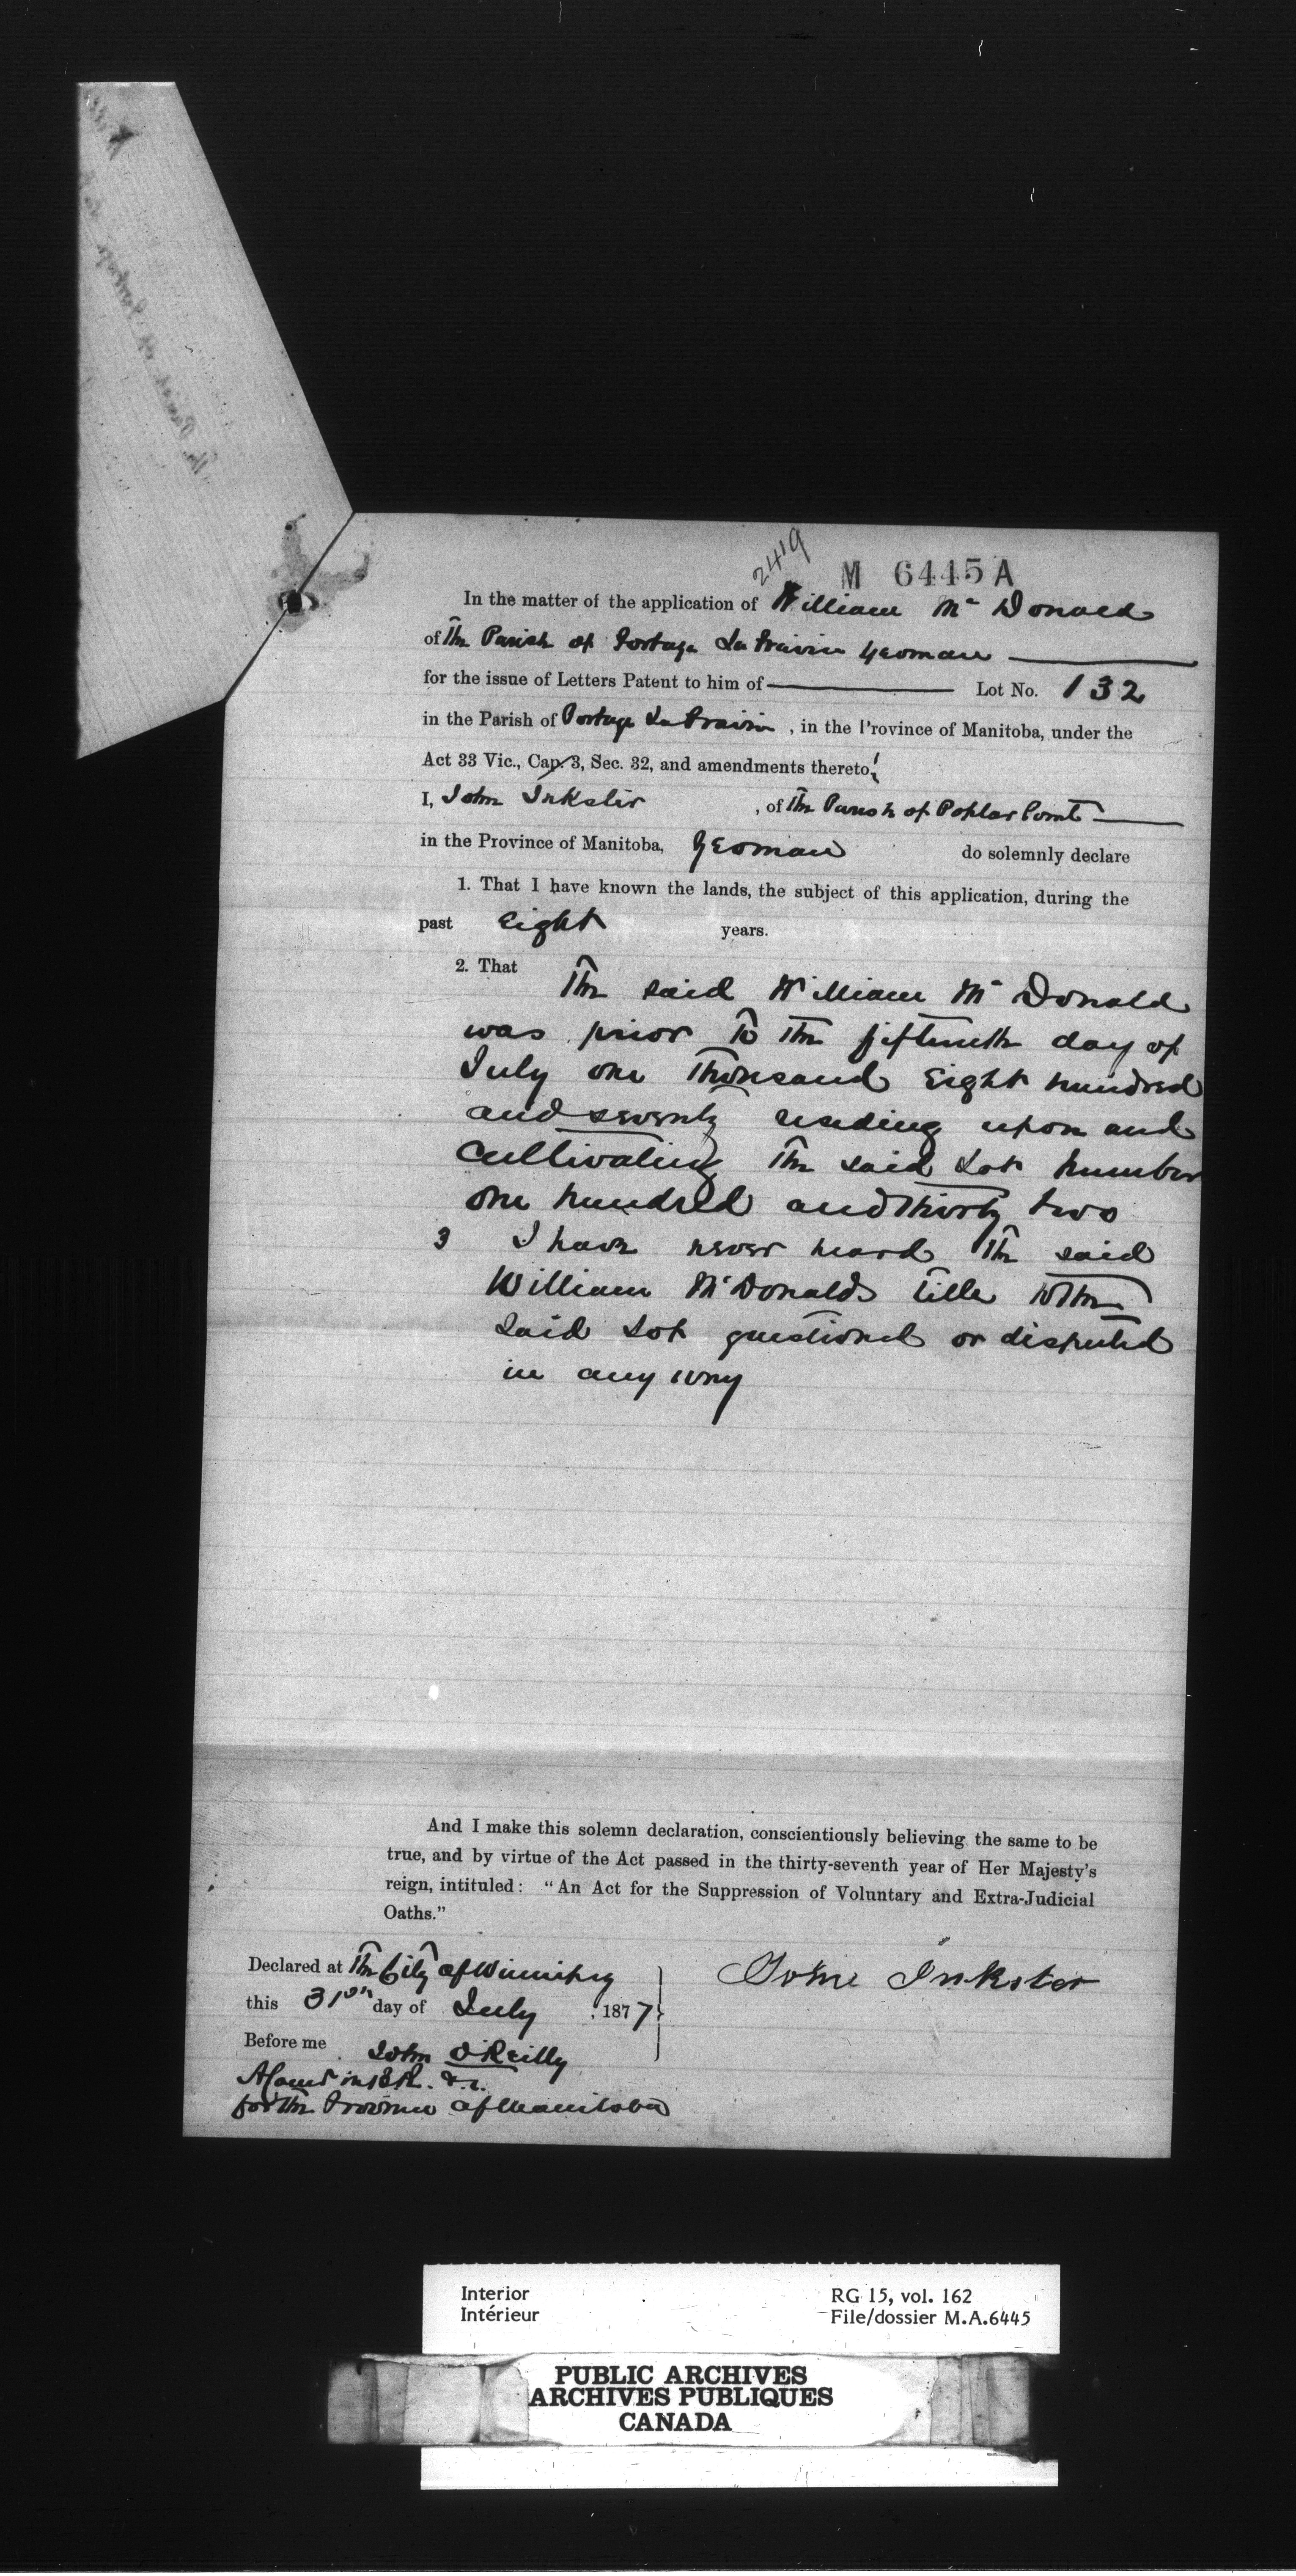 2419
M 6445 A
In the matter of the application of William Mc Donald
of The Parish of Portage La Prairie Yeoman
for the issue of Letters Patent to him of Lot No. 132
in the Parish of Portage La Prairie, in the Province of Manitoba, under the
Act 33 Vic., Cap. 3, Sec. 32, and amendments thereto:
I, John Inkster, of The Parish of Poplar Point
in the Province of Manitoba, Yeoman do solemnly declare
1. That I have known the lands, the subject of this application, during the
past Eight years.
2. That The said William Mc Donald
was prior To The fifteenth day of
July one Thousand Eight hundred
and seventy residing upon and
Cultivating The said Lot Number
one hundred and Thirty two
3 I have never heard The said
William McDonalds Title to The
said Lot questioned or disputed
in any way
And I make this solemn declaration, conscientiously believing the same to be
true, and by virtue of the Act passed in the thirty-seventh year of Her Majesty's
reign, intituled: "An Act for the Suppression of Voluntary and Extra-Judicial
Oaths."
Declared at The City of Winnipeg
this 31st day of July, 1877
John Inkster
Before me John O'Reilly
A Comr in B.R. &c.
for The Province of Manitoba
Interior
Intérieur
RG 15, vol. 162
File/dossier M.A.6445
PUBLIC ARCHIVES
ARCHIVES PUBLIQUES
CANADA